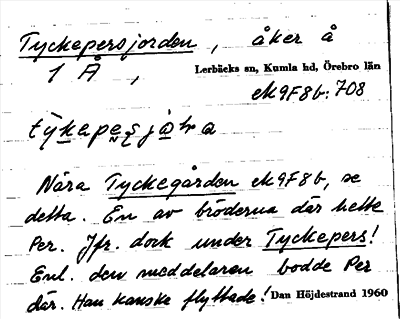 Tyckepersjorden, åker å
1 Å,
Lerbäcks sn, Kumla hd, Örebro län
ek 9F8b: 708
Nära Tyckegården ek 9F8b, se
detta. En av bröderna där hette
Per. Jfr. dock under Tyckepers!
Enl. den meddelaren bodde Per
där. Han kanske flyttade!
Dan Höjdestrand 1960